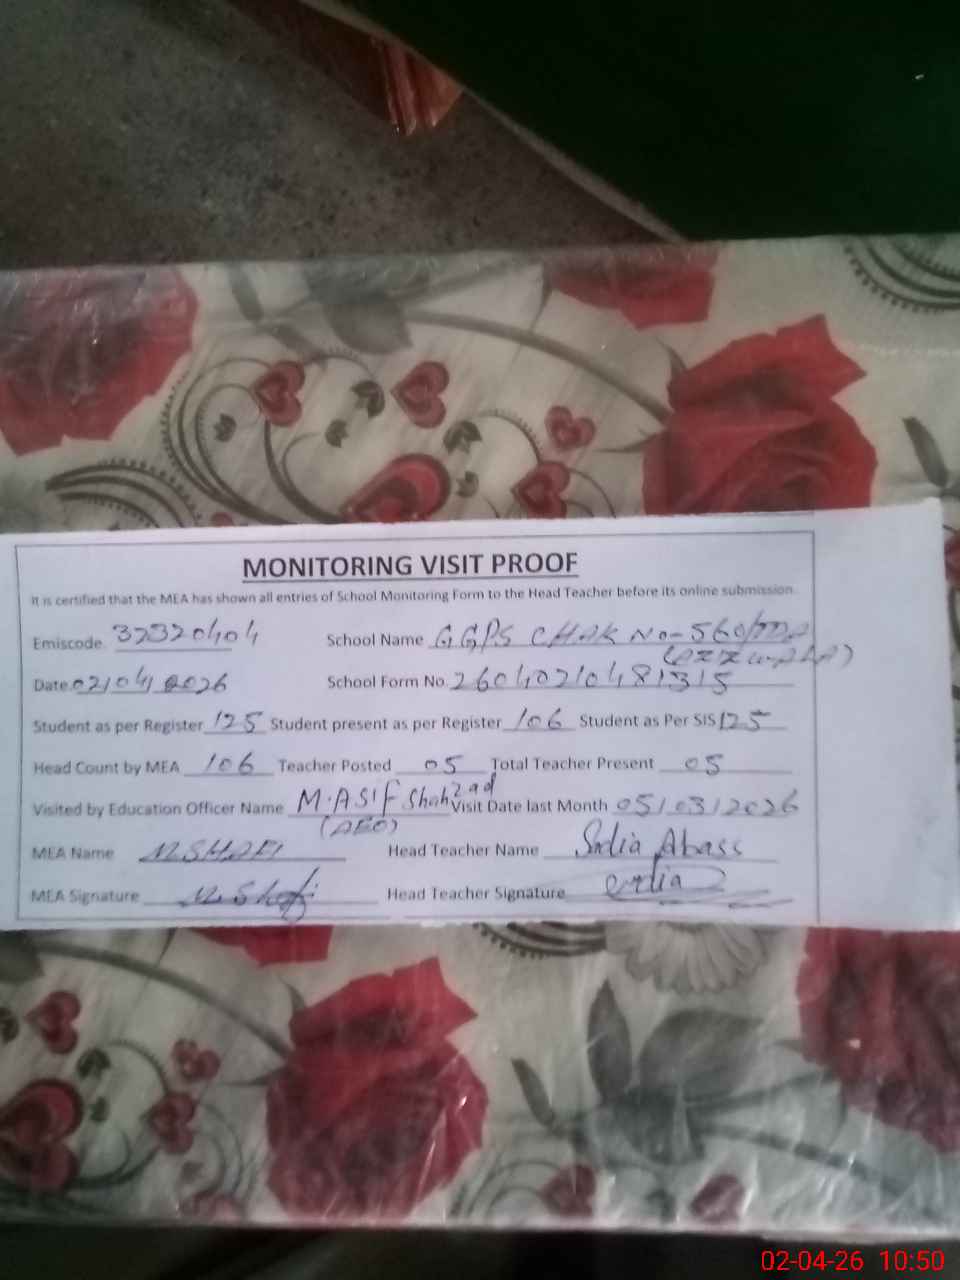 MONITORING VISIT PROOF
It is certified that the MEA has shown all entries of School Monitoring Form to the Head Teacher before its online submission.
Emiscode 32320404 School Name GGPS CHAK No-560/TDA
Date 02/04/2026 School Form No. 26040210481315
Student as per Register 125 Student present as per Register 106 Student as Per SIS 125
Head Count by MEA 106 Teacher Posted 05 Total Teacher Present 05
Visited by Education Officer Name M.ASIF Shahzad Visit Date last Month 05/03/2026
(AEO)
MEA Name M.SHAFI Head Teacher Name Sadia Abass
MEA Signature M.Shafi Head Teacher Signature
02-04-26 10:50